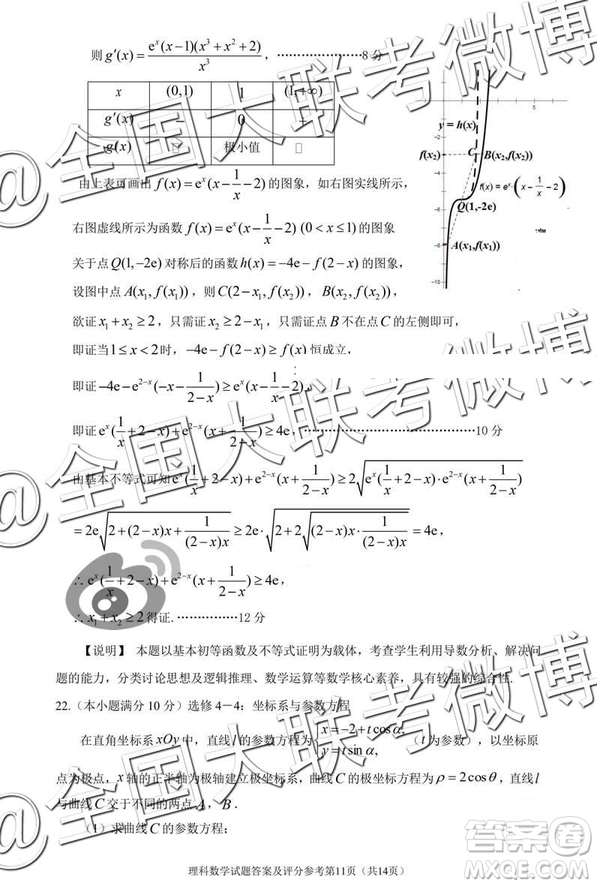 则 g′(x) = e^x(x−1)(x³+x²+2)/x³，………………8分
x (0,1) 1 (1,+∞)
g′(x) 0 +
g(x) 极小值
由上表可画出 f(x)=e^x(x−1/x−2) 的图象，如右图实线所示，
右图虚线所示为函数 f(x)=e^x(x−1/x−2) (0<x≤1) 的图象
关于点Q(1,−2e) 对称后的函数 h(x)=−4e−f(2−x) 的图象，
设图中点 A(x₁,f(x₁))，则 C(2−x₁,f(x₂))，B(x₂,f(x₂))，
欲证 x₁+x₂≥2，只需证 x₂≥2−x₁，只需证点 B 不在点 C 的左侧即可，
即证当 1≤x<2 时，−4e−f(2−x)≥f(x) 恒成立，
y = h(x)
5
f(x₂)
C
B(x₂,f(x₂))
f(x) = e^x·(x − 1/x − 2)
Q(1,-2e)
A(x₁,f(x₁))
-2
-4
-6
-8
-10
即证−4e−e^(2−x)(−x−1/(2−x))≥e^x(x−1/x−2)，
即证 e^x(1/x+2−x)+e^(2−x)(x+1/(2−x))≥4e，………………10分
由基本不等式可知 e^x(1/x+2−x)+e^(2−x)(x+1/(2−x))≥2√(e^x(1/x+2−x)·e^(2−x)(x+1/(2−x)))
=2e√(2+(2−x)x+1/((2−x)x))≥2e·√(2+2√((2−x)x·1/((2−x)x)))=4e，
∴e^x(1/x+2−x)+e^(2−x)(x+1/(2−x))≥4e，
∴x₁+x₂≥2得证.………………12分
【说明】 本题以基本初等函数及不等式证明为载体，考查学生利用导数分析、解决问
题的能力，分类讨论思想及逻辑推理、数学运算等数学核心素养，具有较强的综合性.
22.（本小题满分10分）选修4－4：坐标系与参数方程
在直角坐标系xOy中，直线l的参数方程为{x=−2+tcosα, y=tsinα, （t为参数），以坐标原
点为极点，x轴的正半轴为极轴建立极坐标系，曲线C的极坐标方程为ρ=2cosθ，直线l
与曲线C交于不同的两点A，B.
（1）求曲线C的参数方程；
理科数学试题答案及评分参考第11页（共14页）
@全国大联考微博
@全国大联考微博
答案圈
MXQE.COM